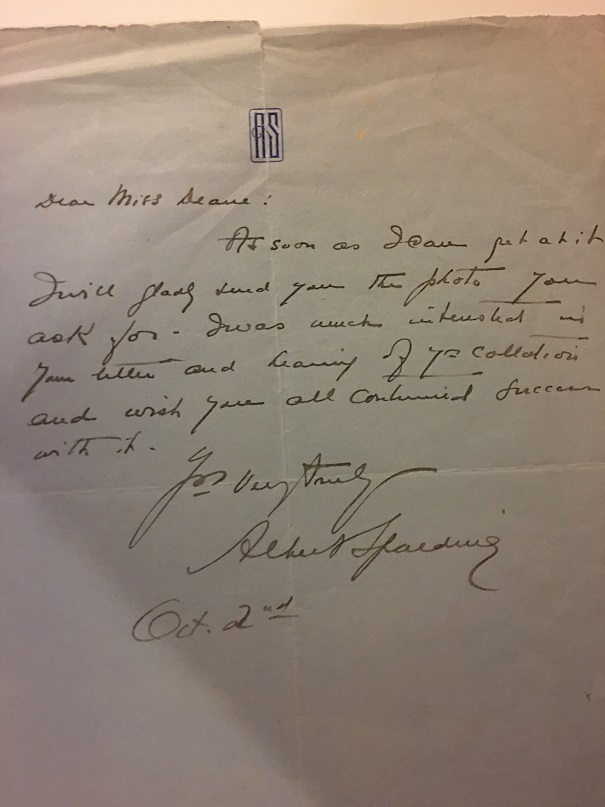 AS
Dear Miss Deane:
As soon as I can get at it
I will gladly send you the photo you
ask for - I was much interested in
your letter and hearing of yr collection
and wish you all continued success
with it.
Yrs Very truly
Albert Spalding
Oct. 2nd